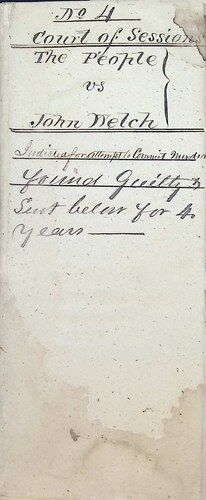 No 4
Court of Sessions
The People
vs
John Welch
Indicted for attempt to Commit Murder
found Guilty &
Sent below for 4
years